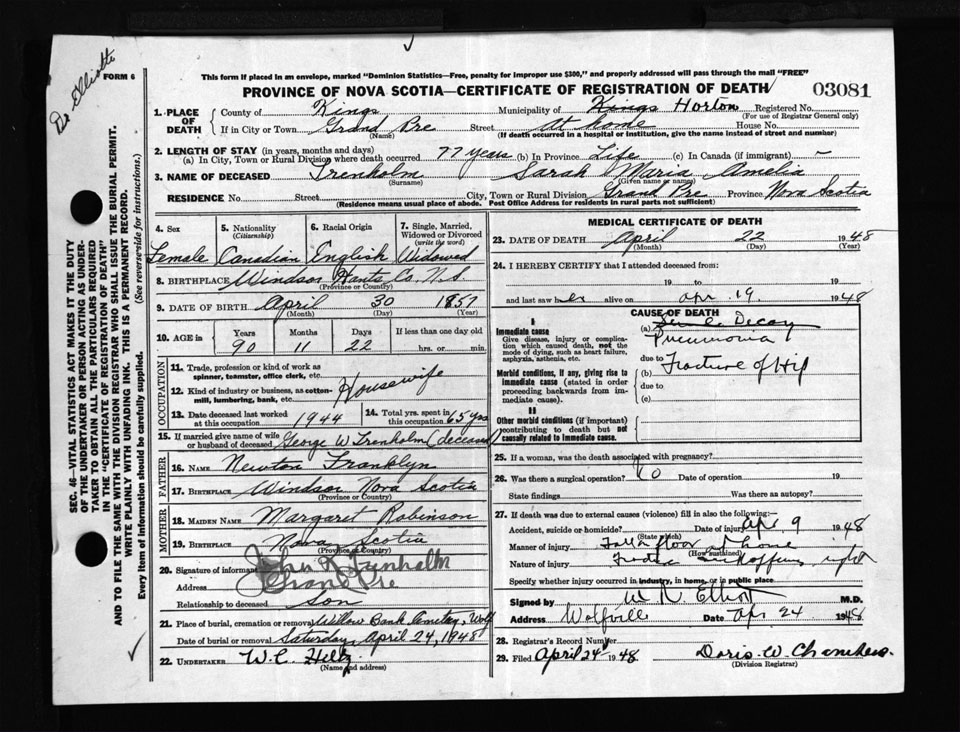 Dr Elliotte
FORM 6
This form if placed in an envelope, marked "Dominion Statistics—Free, penalty for improper use $300," and properly addressed will pass through the mail "FREE"
PROVINCE OF NOVA SCOTIA—CERTIFICATE OF REGISTRATION OF DEATH
03081
1. PLACE OF DEATH County of Kings Municipality of Kings Horton Registered No.
(For use of Registrar General only)
If in City or Town Grand Pre Street At home House No.
(Name) (If death occurred in a hospital or institution, give the name instead of street and number)
2. LENGTH OF STAY (in years, months and days)
(a) In City, Town or Rural Division where death occurred 77 years (b) In Province Life (c) In Canada (if immigrant) –
3. NAME OF DECEASED Trenholm Sarah Maria Amelia
(Surname) (Given name or name)
RESIDENCE No. Street City, Town or Rural Division Grand Pre Province Nova Scotia
(Residence means usual place of abode. Post Office Address for residents in rural parts not sufficient)
4. Sex 5. Nationality (Citizenship) 6. Racial Origin 7. Single, Married, Widowed or Divorced (write the word)
Female Canadian English Widowed
8. BIRTHPLACE Windsor Hants Co. N.S.
(Province or Country)
9. DATE OF BIRTH April 30 1857
(Month) (Day) (Year)
10. AGE in Years Months Days If less than one day old
90 11 22 hrs. or min.
OCCUPATION
11. Trade, profession or kind of work as spinner, teamster, office clerk, etc.
12. Kind of industry or business, as cotton-mill, lumbering, bank, etc. Housewife
13. Date deceased last worked at this occupation 1944 14. Total yrs. spent in this occupation 65 yrs
15. If married give name of wife or husband of deceased George W Trenholm (deceased)
FATHER
16. NAME Newton Franklyn
17. BIRTHPLACE Windsor Nova Scotia
(Province or Country)
MOTHER
18. MAIDEN NAME Margaret Robinson
19. BIRTHPLACE Nova Scotia
(Province or Country)
20. Signature of informant John Trenholm
Address Grand Pre
Relationship to deceased Son
21. Place of burial, cremation or removal Willow Bank Cemetery, Wolf
Date of burial or removal Saturday, April 24, 1948
22. UNDERTAKER W.C. Hiltz
(Name and address)
MEDICAL CERTIFICATE OF DEATH
23. DATE OF DEATH April 22 1948
(Month) (Day) (Year)
24. I HEREBY CERTIFY that I attended deceased from:
19 to 19
and last saw her alive on Apr 19. 1948
CAUSE OF DEATH
I
Immediate cause (a) Senile Decay
Pneumonia
Give disease, injury or complication which caused death, not the mode of dying, such as heart failure, asphyxia, asthenia, etc.
due to
Morbid conditions, if any, giving rise to immediate cause (stated in order proceeding backwards from immediate cause). (b) Fracture of Hip
due to
(c)
II
Other morbid conditions (if important) contributing to death but not causally related to immediate cause.
25. If a woman, was the death associated with pregnancy?
26. Was there a surgical operation? No Date of operation 19
State findings Was there an autopsy?
27. If death was due to external causes (violence) fill in also the following:—
Accident, suicide or homicide? Date of injury Apr 9 1948
(State which)
Manner of injury Fall floor at home
(How sustained)
Nature of injury right
Specify whether injury occurred in industry, in home, or in public place
Signed by W R Elliott M.D.
Address Wolfville Date Apr 24 1948
28. Registrar's Record Number
29. Filed April 24 1948 Doris W. Chambers.
(Division Registrar)
SEC. 46—VITAL STATISTICS ACT MAKES IT THE DUTY
OF THE UNDERTAKER OR PERSON ACTING AS UNDER-
TAKER TO OBTAIN ALL THE PARTICULARS REQUIRED
IN THE "CERTIFICATE OF REGISTRATION OF DEATH"
AND TO FILE THE SAME WITH THE DIVISION REGISTRAR WHO SHALL ISSUE THE BURIAL PERMIT.
WRITE PLAINLY WITH UNFADING INK. THIS IS A PERMANENT RECORD.
Every item of information should be carefully supplied. (See reverse side for instructions.)